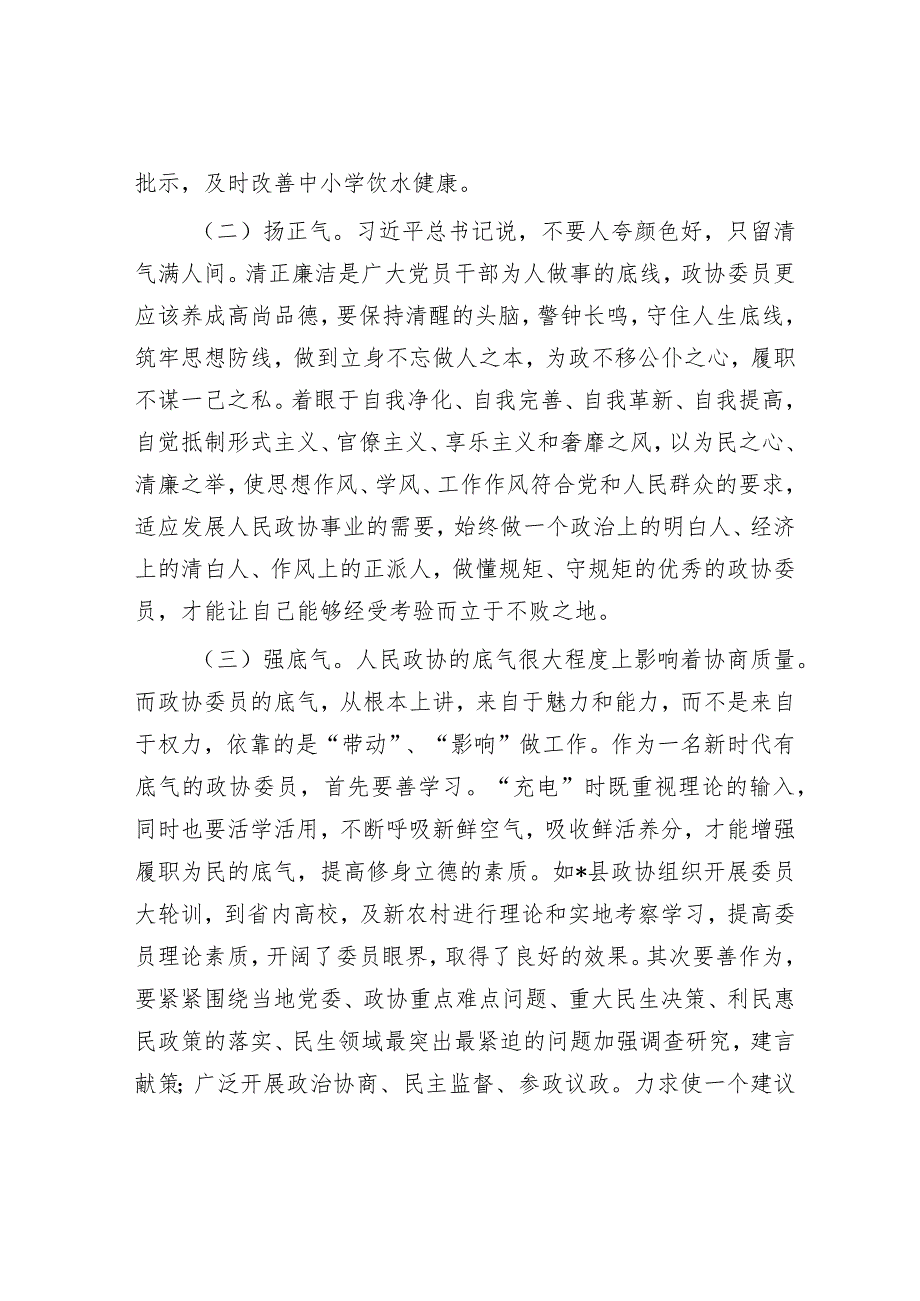 批示，及时改善中小学饮水健康。
（二）扬正气。习近平总书记说，不要人夸颜色好，只留清
气满人间。清正廉洁是广大党员干部为人做事的底线，政协委员更
应该养成高尚品德，要保持清醒的头脑，警钟长鸣，守住人生底线，
筑牢思想防线，做到立身不忘做人之本，为政不移公仆之心，履职
不谋一己之私。着眼于自我净化、自我完善、自我革新、自我提高，
自觉抵制形式主义、官僚主义、享乐主义和奢靡之风，以为民之心、
清廉之举，使思想作风、学风、工作作风符合党和人民群众的要求，
适应发展人民政协事业的需要，始终做一个政治上的明白人、经济
上的清白人、作风上的正派人，做懂规矩、守规矩的优秀的政协委
员，才能让自己能够经受考验而立于不败之地。
（三）强底气。人民政协的底气很大程度上影响着协商质量。
而政协委员的底气，从根本上讲，来自于魅力和能力，而不是来自
于权力，依靠的是“带动”、“影响”做工作。作为一名新时代有
底气的政协委员，首先要善学习。“充电”时既重视理论的输入，
同时也要活学活用，不断呼吸新鲜空气，吸收鲜活养分，才能增强
履职为民的底气，提高修身立德的素质。如*县政协组织开展委员
大轮训，到省内高校，及新农村进行理论和实地考察学习，提高委
员理论素质，开阔了委员眼界，取得了良好的效果。其次要善作为，
要紧紧围绕当地党委、政协重点难点问题、重大民生决策、利民惠
民政策的落实、民生领域最突出最紧迫的问题加强调查研究，建言
献策；广泛开展政治协商、民主监督、参政议政。力求使一个建议